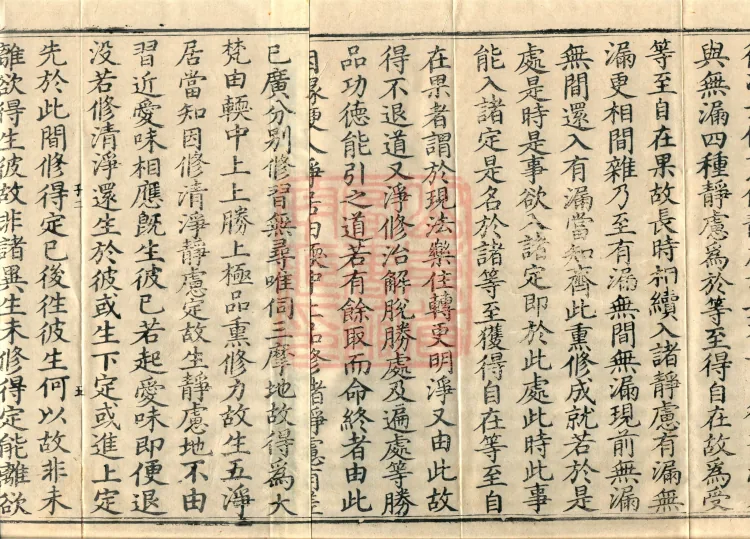 與無漏四種靜慮為於等至得自在故為受
等至自在果故長時相續入諸靜慮有漏無
漏更相間雜乃至有漏無間無漏現前無漏
無間還入有漏當知齊此熏修成就若於是
處是時是事欲入諸定即於此處此時此事
能入諸定是名於諸等至獲得自在等至自
在果者謂於現法樂住轉更明淨又由此故
得不退道又淨修治解脫勝處及遍處等勝
品功德能引之道若有餘取而命終者由此
因緣便入淨居由耎中上品修諸靜慮有差
已廣分別修習無尋唯伺三摩地故得為大
梵由耎中上上勝上極品熏修力故生五淨
居當知因修清淨靜慮定故生靜慮地不由
習近愛味相應既生彼已若起愛味即便退
没若修清淨還生於彼或生下定或進上定
先於此間修得定已後徃彼生何以故非未
離欲得生彼故非諸異生未修得定能離欲
子二
五